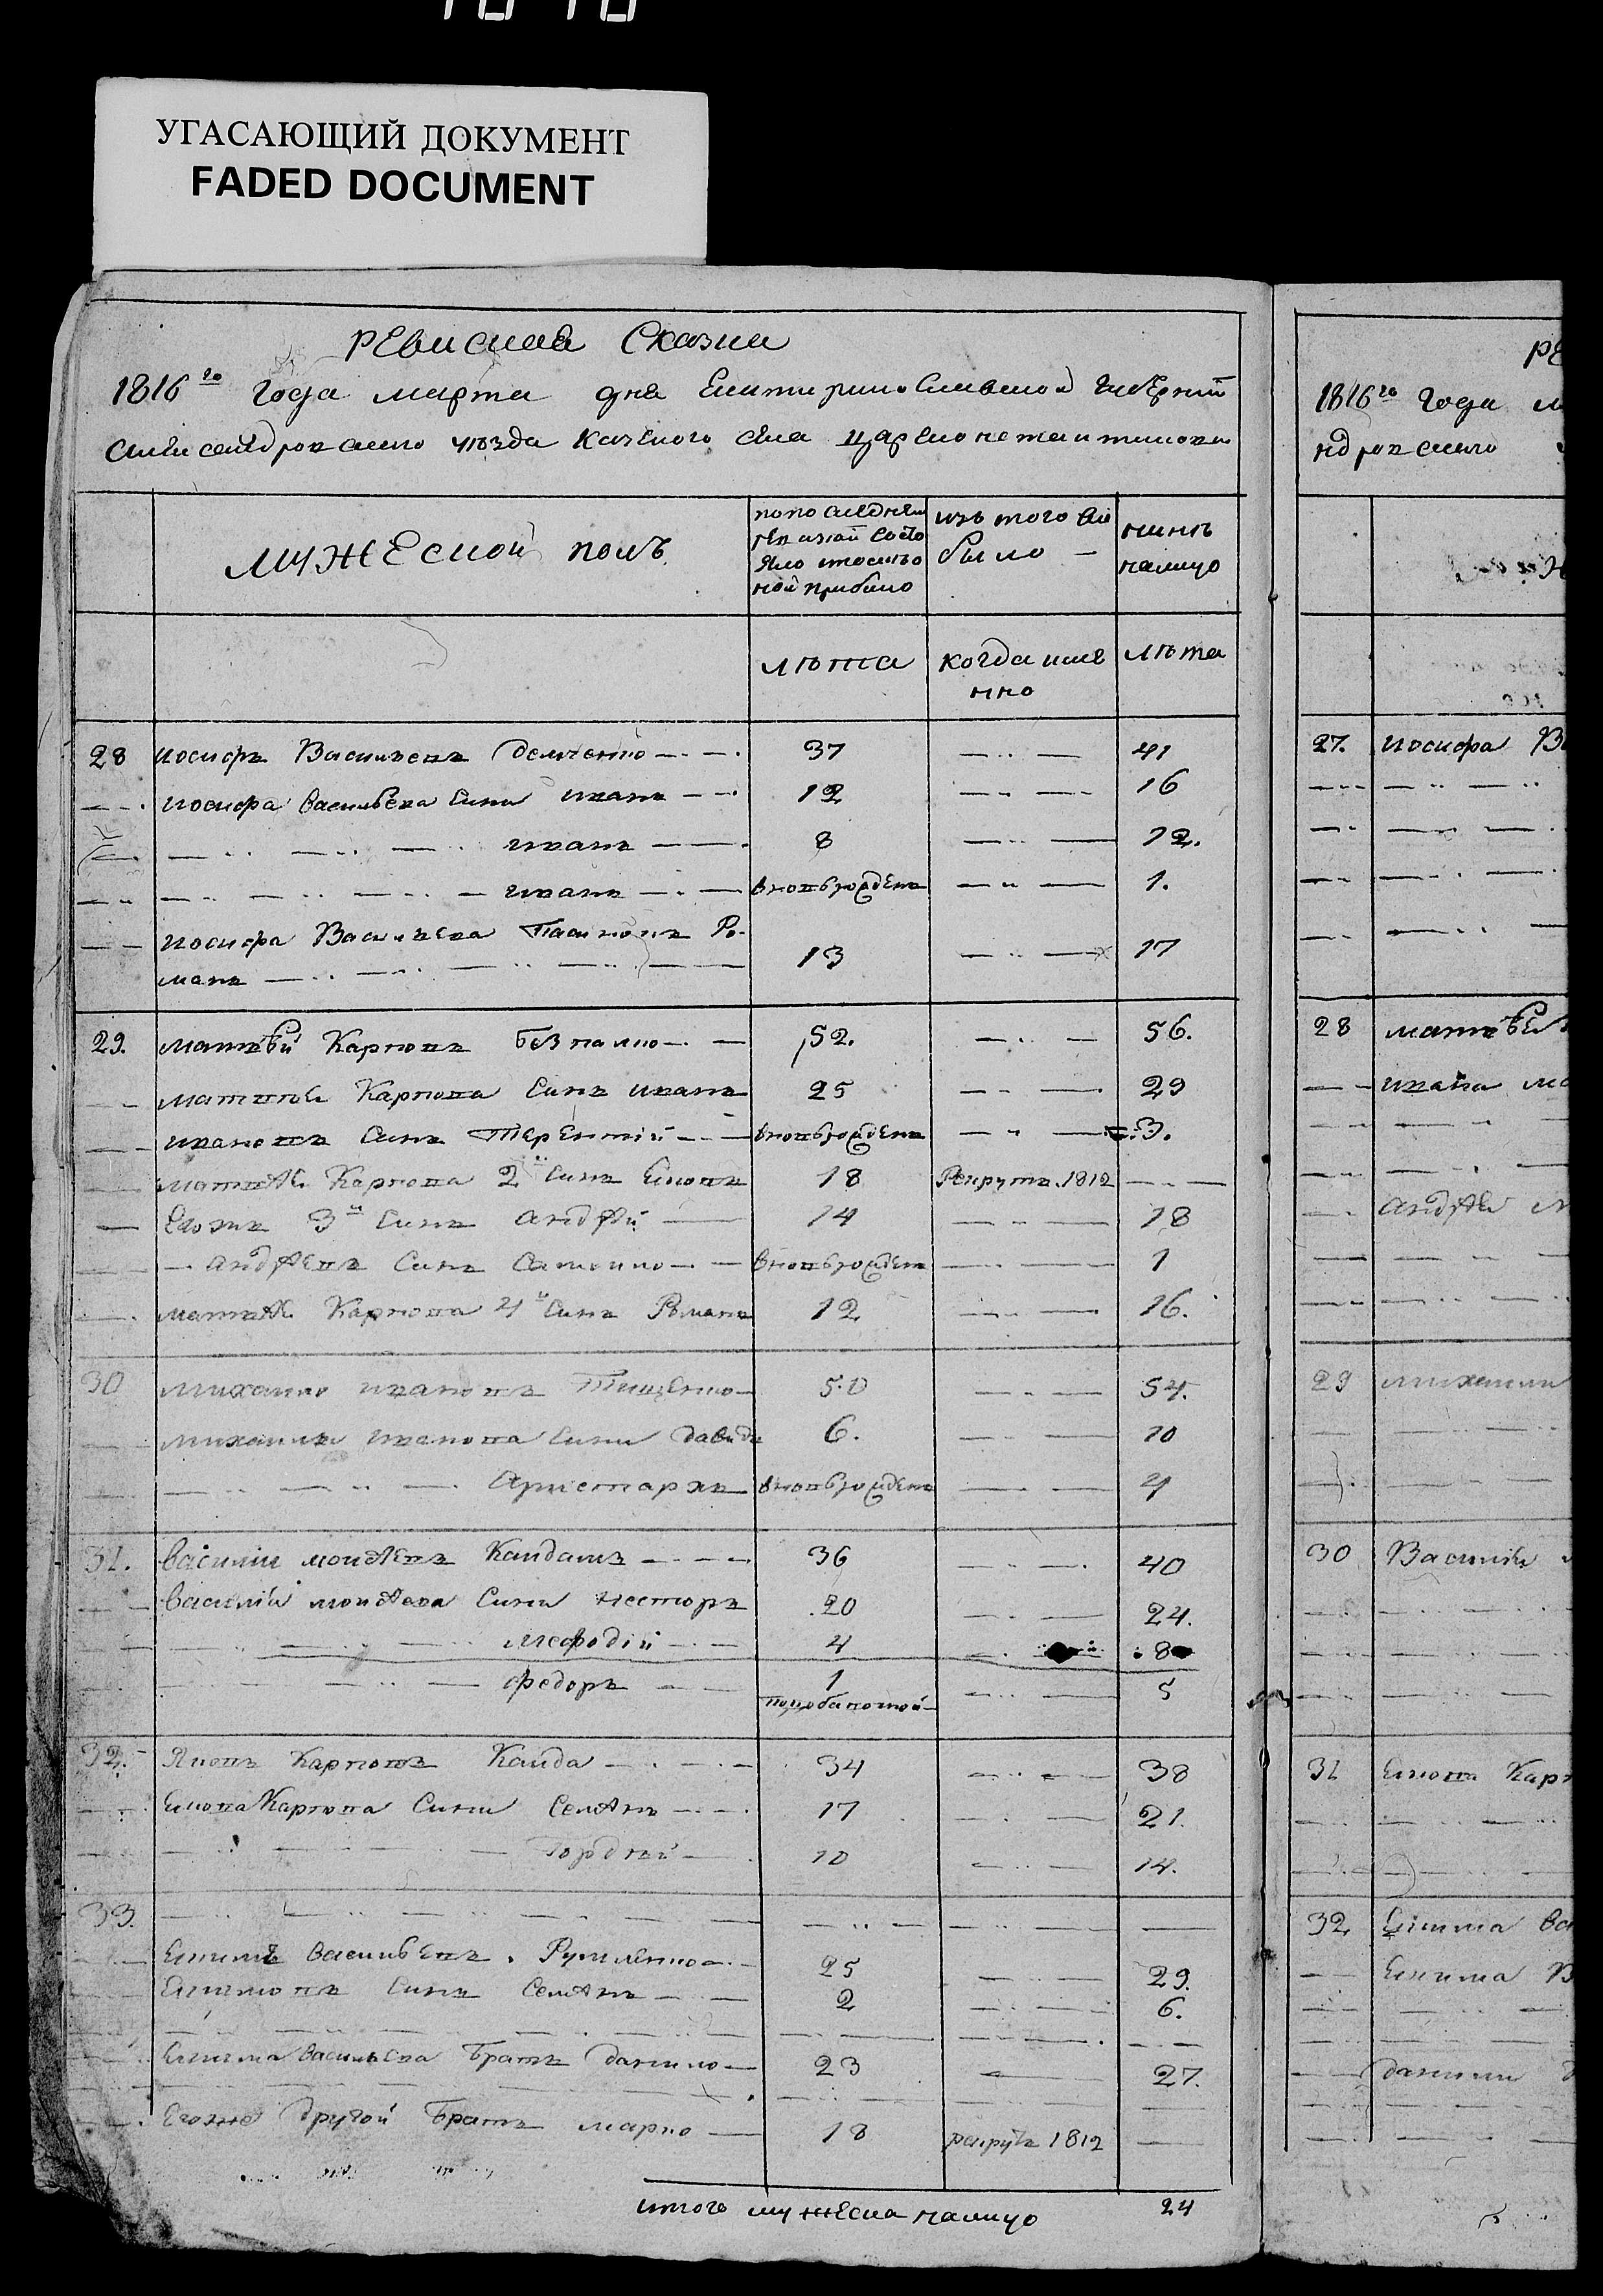 УГАСАЮЩИЙ ДОКУМЕНТ
FADED DOCUMENT
РЕвиская Сказка
1816го Года марта дня Екатеринославской Губернїи
Александровского уѣзда Казеного села Царе
мужЕской полъ
попослѣднѣй
ревизїи состо
яло и после о
ной прибыло
изъ того вы
было —
нынѣ
налицо
лѣта
когда име
нно
лѣта
28 иосифъ Васильевъ Демченко 37 41
иосифа васильева сыны иванъ 12 16
иванъ 8 12.
иванъ вновьрожденъ 1.
иосифа Васильева Пасынокъ Ро
манъ 13 17
29. матвѣй Карповъ 52. 56.
матвѣя Карпова сынъ иванъ 25 29
ивановъ сынъ Терентїй вновьрожденъ 3.
матвѣя Карпова 2й сынъ Яковъ 18 Рекрутъ 1812
Егожъ 3й сынъ андрѣй 14 18
андрѣевъ сынъ Самойло вновьрожденъ 1
матвѣя Карпова 4й сынъ Романъ 12 16.
30 михайло ивановъ Тищенко 50 54.
михайла иванова сыны давидъ 6. 10
Аристархъ вновьрожденъ 4
31. василїй мойсѣевъ Кайдашъ 36 40
василїя мойсѣева сыны несторъ 20 24.
мефодїй 4 8
федоръ 1 5
32. Яковъ Карповъ Кайда 34 38
Якова Карпова сыны семенъ 17 21.
Гордѣй 10 14.
33.
Екимъ васильевъ 25 29.
Екимовъ сынъ семенъ 2 6.
Екима васильева братъ данило 23 27.
Егоже другой братъ марко 18 рекрутъ 1812
итого мужеска налицо 24
РЕ
1816го Года м
ндровского
27. иосифа В
28 матвѣя
ивана ма
андрѣя м
29 михаила
30 Василїя м
31 Якова Карп
32 Екима ва
Екима В
данила